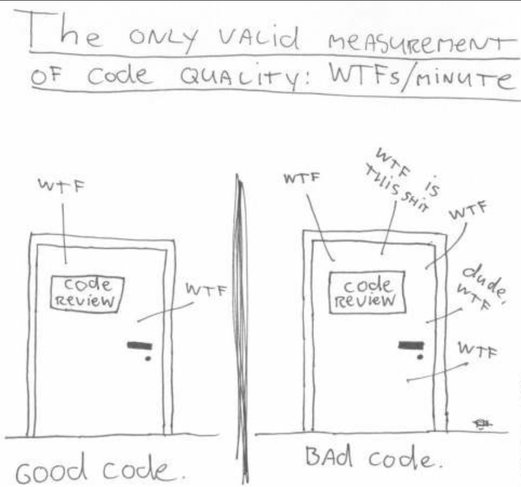 The ONLY VALID MEASUREMENT
OF CODE QUALITY: WTFs/MINUTE
WTF
code
REVIEW
WTF
GOOD CODE.
WTF
WTF is
THIS SHIT
WTF
code
REVIEW
dude,
WTF
WTF
BAD CODE.